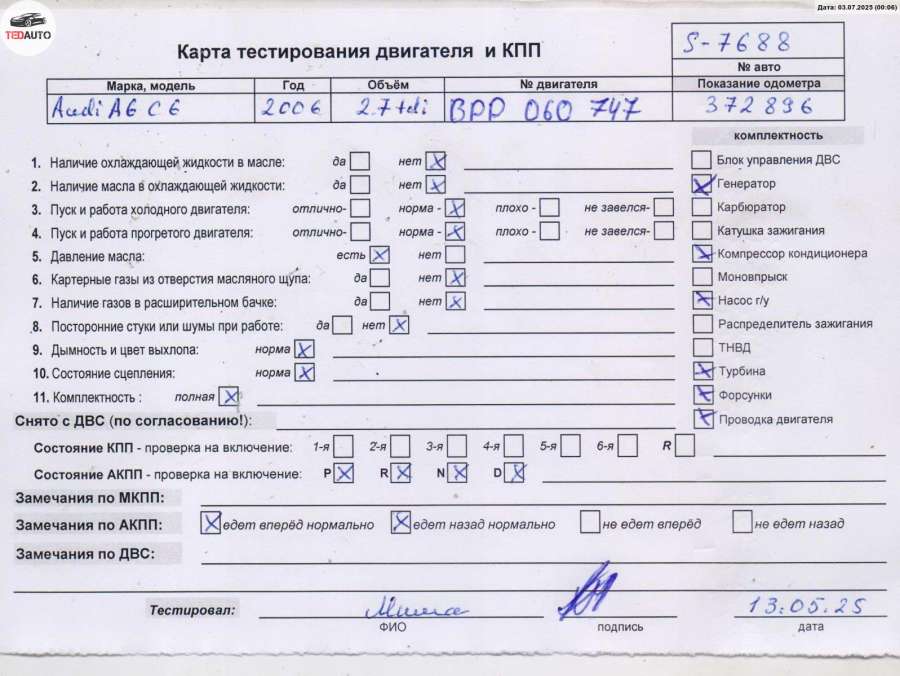 Дата: 03.07.2025 (00:06)
TEDAUTO
Карта тестирования двигателя и КПП
S-7688
№ авто
Марка, модель Год Объём № двигателя Показание одометра
Audi A6 C6 2006 2.7tdi BPP 060 747 372896
комплектность
1. Наличие охлаждающей жидкости в масле: да нет
Блок управления ДВС
2. Наличие масла в охлаждающей жидкости: да нет
Генератор
3. Пуск и работа холодного двигателя: отлично- норма - плохо - не завелся-
Карбюратор
4. Пуск и работа прогретого двигателя: отлично- норма - плохо - не завелся-
Катушка зажигания
5. Давление масла: есть нет
Компрессор кондиционера
6. Картерные газы из отверстия масляного щупа: да нет
Моновпрыск
7. Наличие газов в расширительном бачке: да нет
Насос г/у
8. Посторонние стуки или шумы при работе: да нет
Распределитель зажигания
9. Дымность и цвет выхлопа: норма
ТНВД
10. Состояние сцепления: норма
Турбина
11. Комплектность : полная
Форсунки
Снято с ДВС (по согласованию!):
Проводка двигателя
Состояние КПП - проверка на включение: 1-я 2-я 3-я 4-я 5-я 6-я R
Состояние АКПП - проверка на включение: P R N D
Замечания по МКПП:
Замечания по АКПП: едет вперёд нормально едет назад нормально не едет вперёд не едет назад
Замечания по ДВС:
Тестировал: Миша 13.05.25
ФИО подпись дата